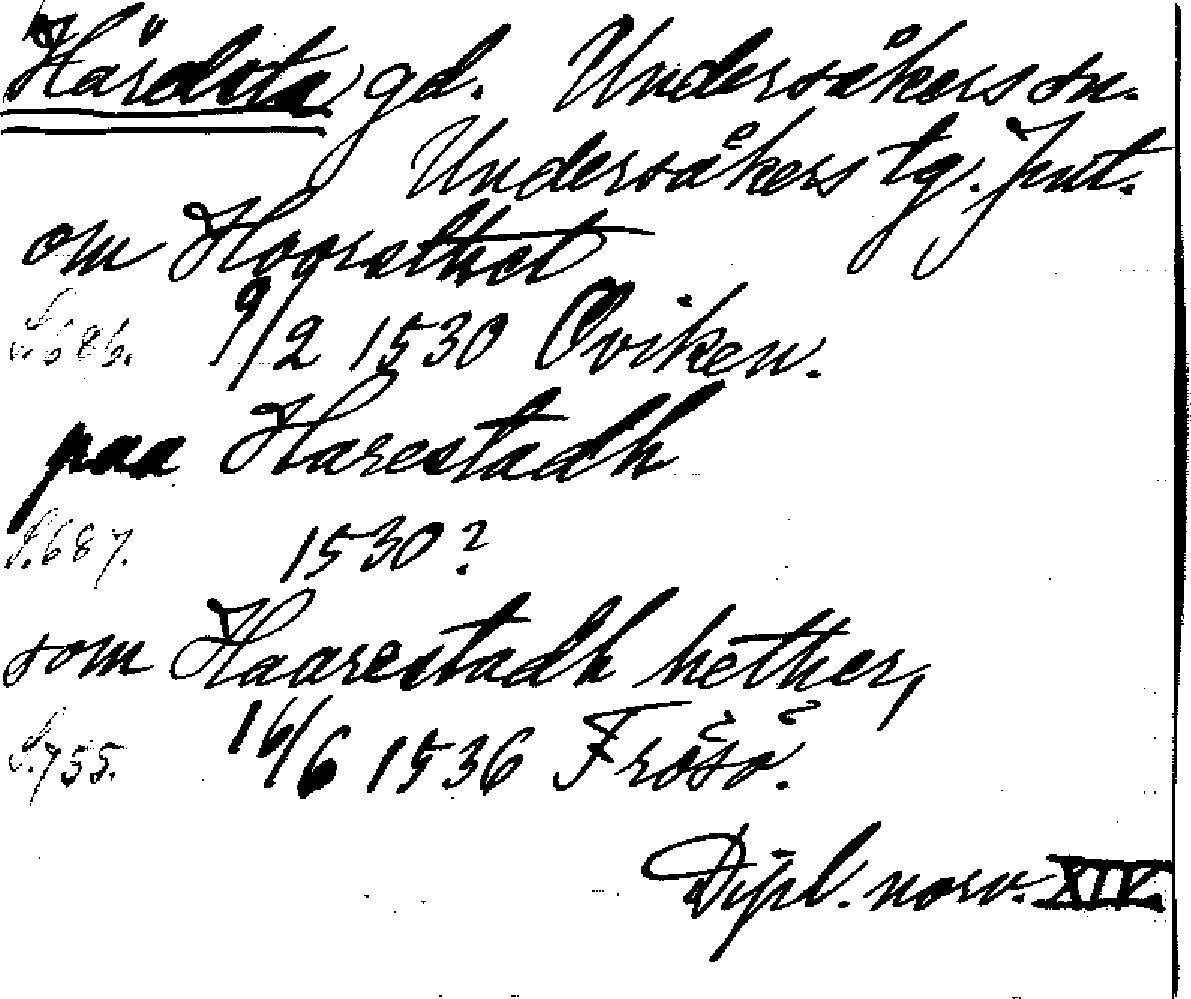 Hårdsta, gd. Undersåkers sn.
Undersåkers tg. Jmt.
om Hoorsthet
S. 686. 9/2 1530 Oviken.
paa Harestadh
S. 687. 1530?
som Haarestadh hether,
S. 755. 16/6 1536 Frösö.
Dipl. norv. XIV.